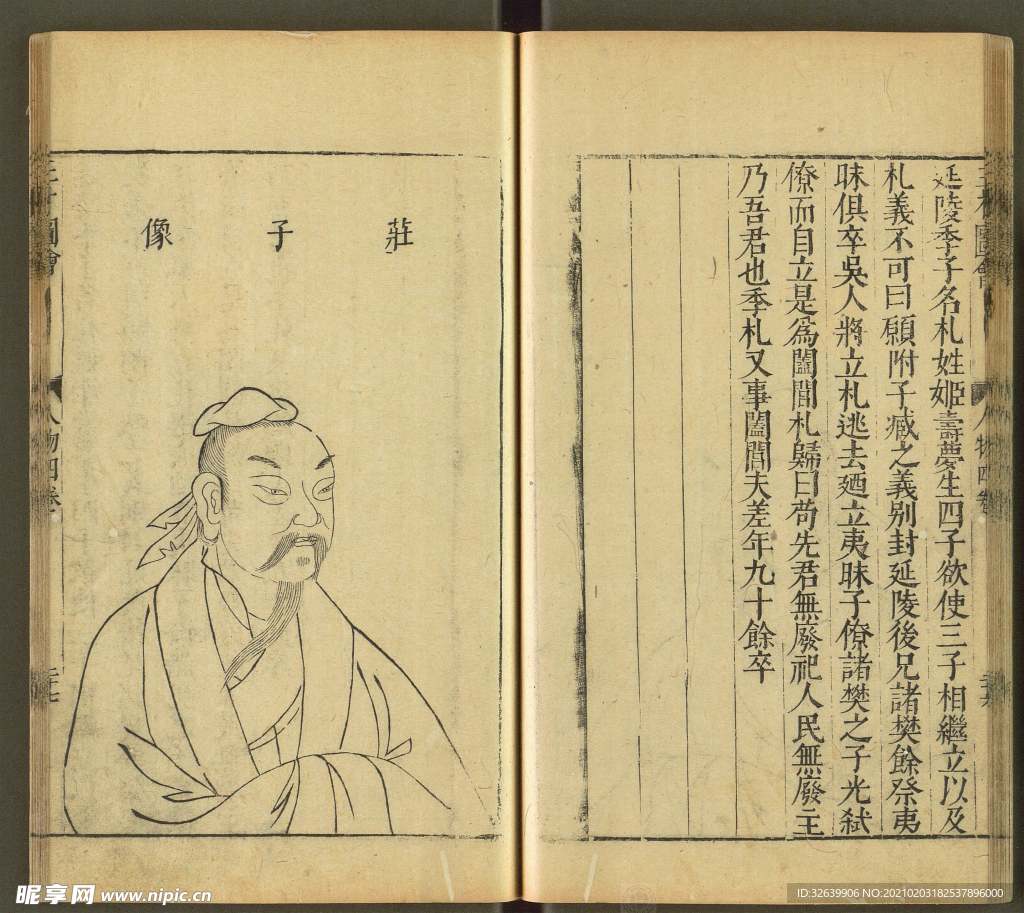 延陵季子名札姓姬壽夢生四子欲使三子相繼立以及
札義不可曰願附子臧之義別封延陵後兄諸樊餘祭夷
昧俱卒吳人將立札逃去廼立夷昧子僚諸樊之子光弒
僚而自立是為闔閭札歸曰苟先君無廢祀人民無廢主
乃吾君也季札又事闔閭夫差年九十餘卒
莊子像
圖會
人物四卷
昵享网 www.nipic.cn
ID:32639906 NO:20210203182537896000